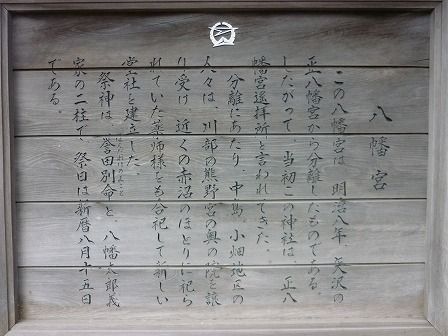 八幡宮
この八幡宮は、明治八年、矢沢の
正八幡宮から分離したものである。
したがって、当初この神社は、正八
幡宮遥拝所と言われてきた。
分離にあたり、中島、小畑地区の
人々は、川部の熊野宮の奥の院を譲
り受け、近くの赤沼のほとりに祀ら
れていた薬師様をも合祀して新しい
宮社を建立した。
祭神は、誉田別命と、八幡太郎義
ほんだわけのみこと
家の二柱で、祭日は新暦八月十五日
である。